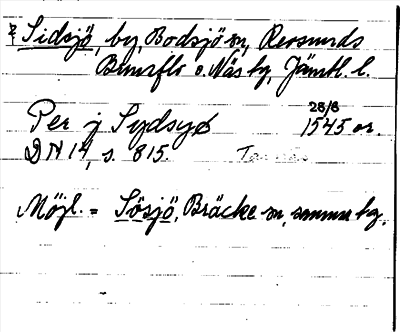 Sidsjö, by, Bodsjö sn, Revsunds
Brunflo o. Näs tg, Jämtl. l.
28/8
Per j Sydsyø 1545 or.
DN 14, s. 815.
Möjl. = Sösjö, Bräcke sn, samma tg.